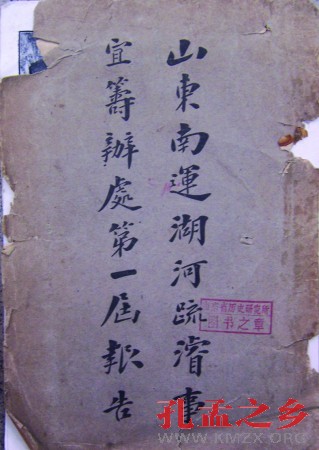 山東南運湖河疏濬事
宜籌辦處第一屆報告
孔孟之乡
WWW.KMZX.ORG